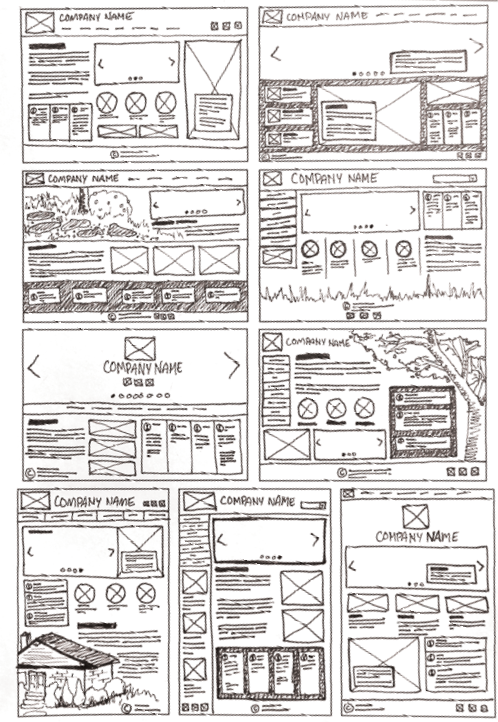 COMPANY NAME
COMPANY NAME
COMPANY NAME
COMPANY NAME
COMPANY NAME
COMPANY NAME
COMPANY NAME
COMPANY NAME
COMPANY NAME
©
©
©
©
©
©
©
©
©